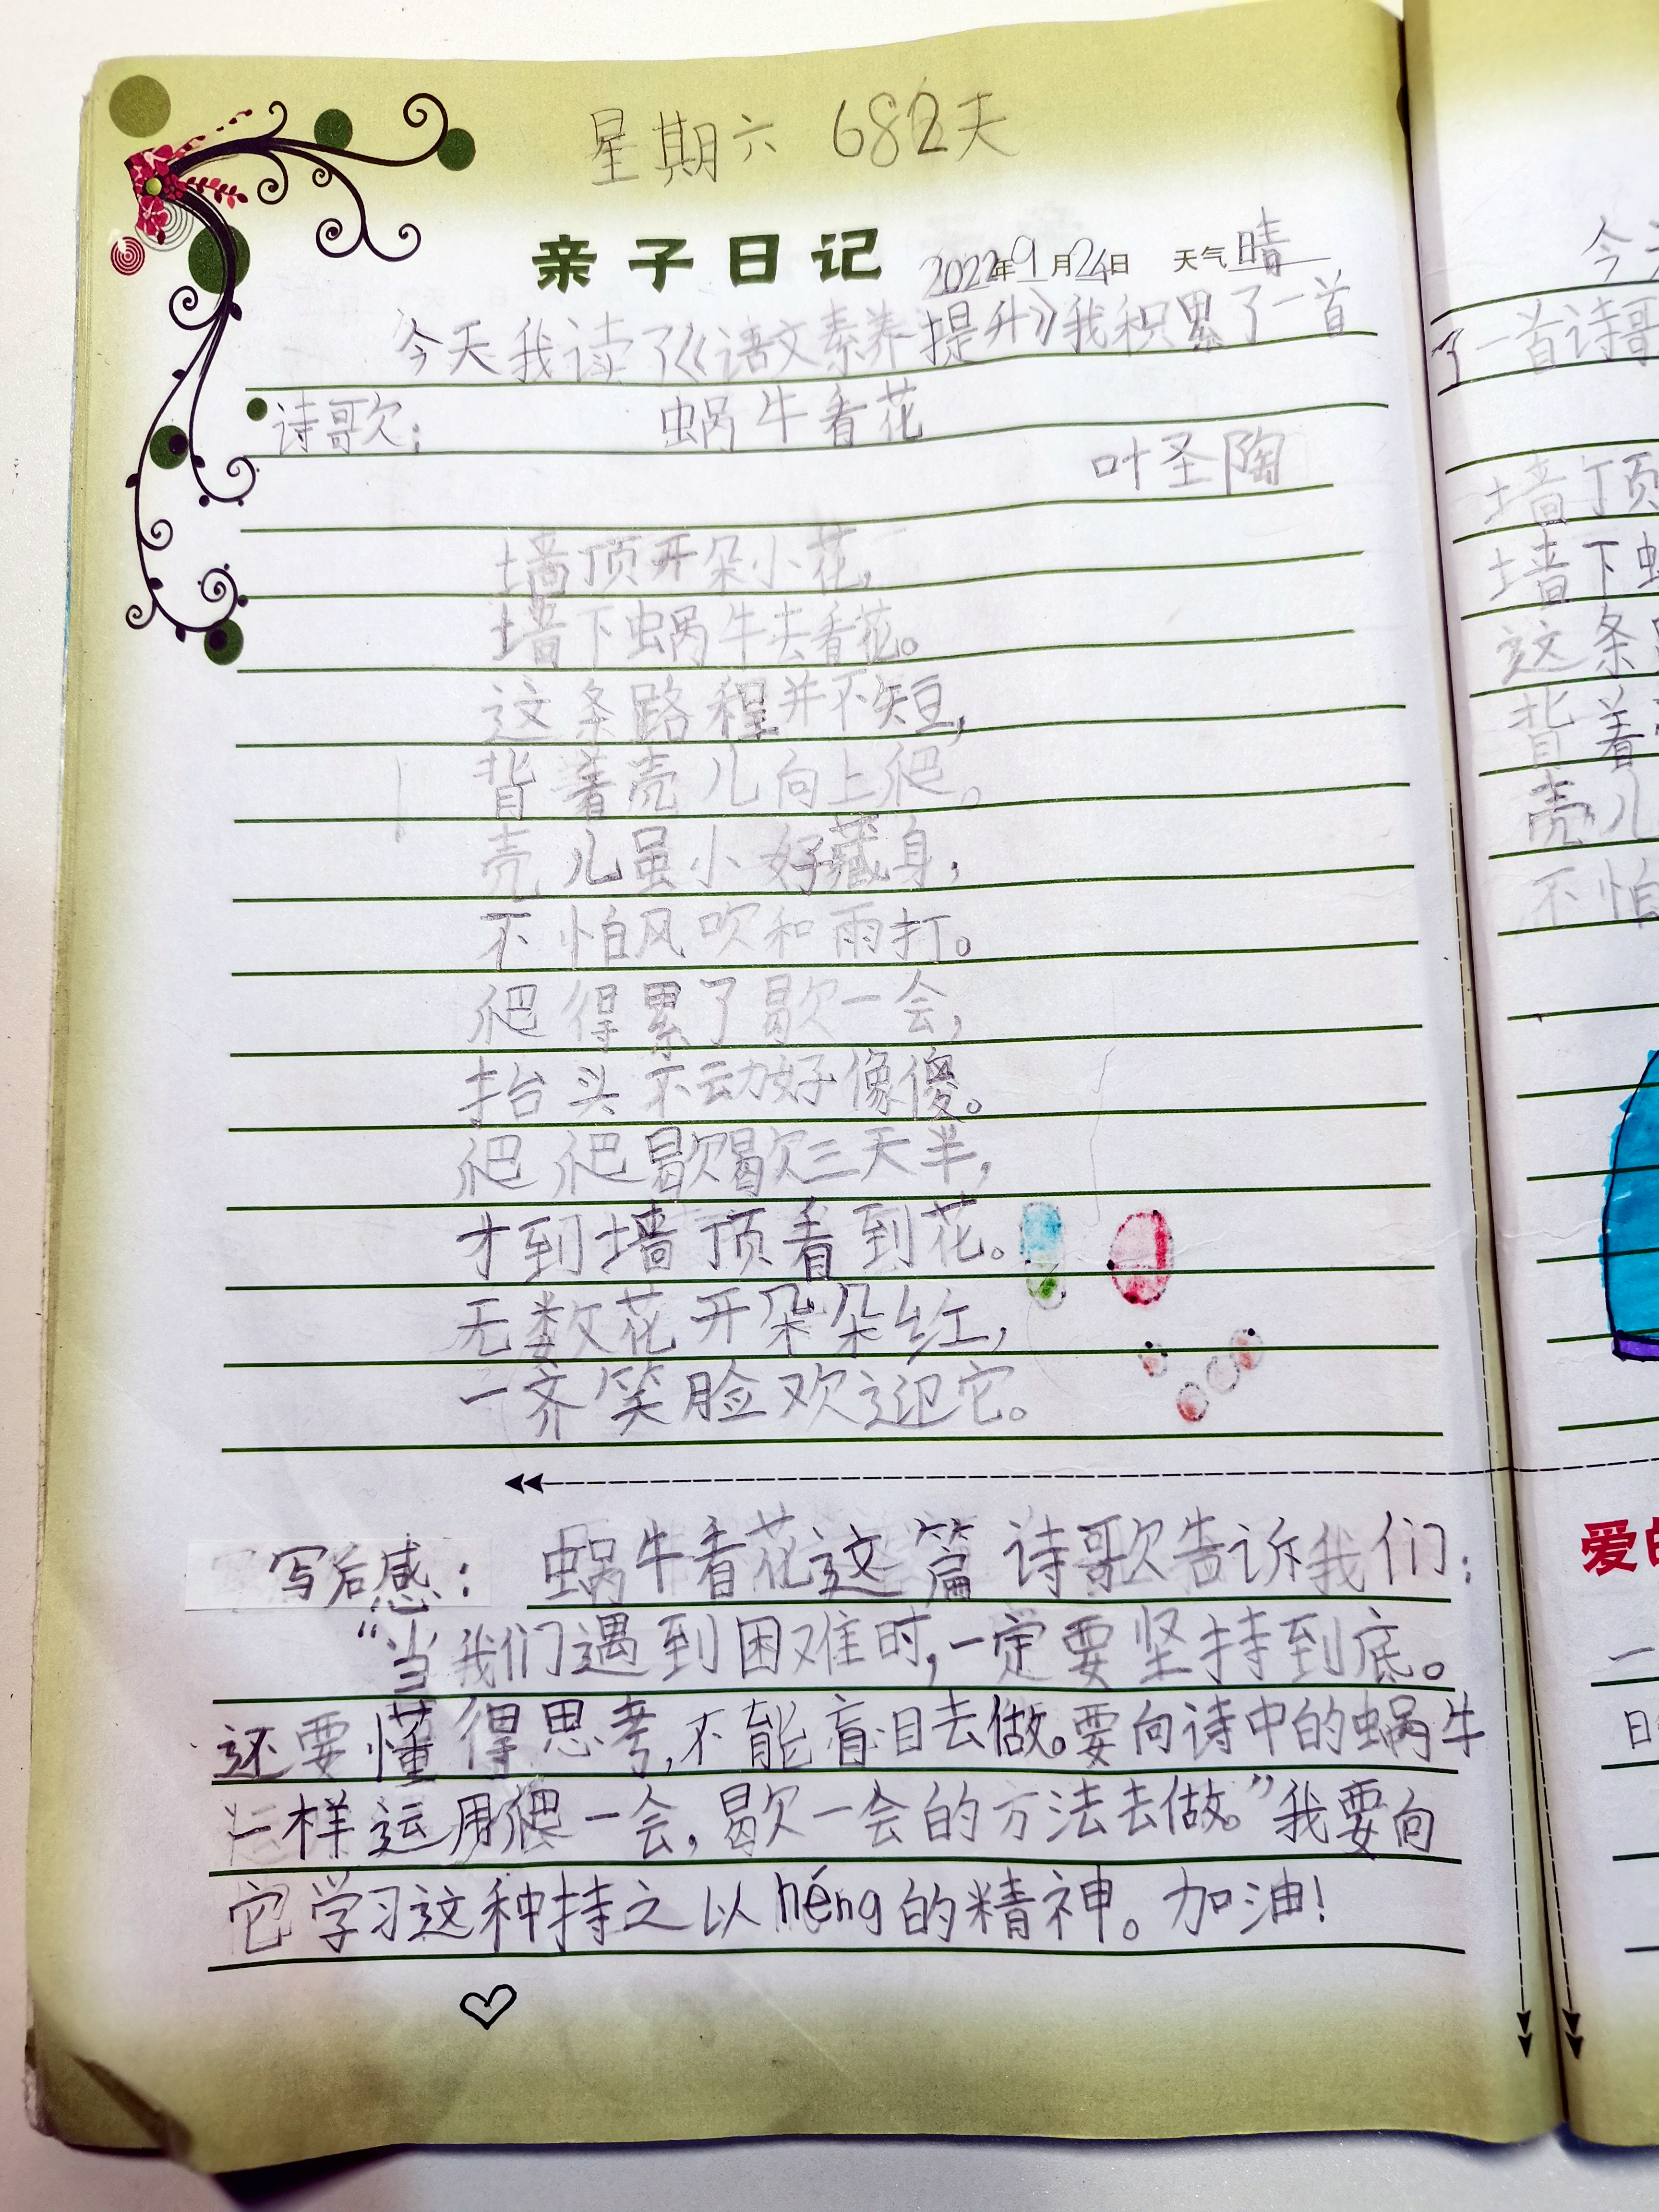 星期六 682天
亲子日记 2022年9月24日 天气 晴
今天我读了《语文素养提升》我积累了一首
诗歌: 蜗牛看花
叶圣陶
墙顶开朵小花,
墙下蜗牛去看花。
这条路程并不短,
背着壳儿向上爬。
壳儿虽小好藏身,
不怕风吹和雨打。
爬得累了歇一会,
抬头不动好像傻。
爬爬歇歇三天半,
才到墙顶看到花。
无数花开朵朵红,
一齐笑脸欢迎它。
写后感: 蜗牛看花这篇诗歌告诉我们:
“当我们遇到困难时,一定要坚持到底。
还要懂得思考,不能盲目去做。要向诗中的蜗牛
一样运用爬一会,歇一会的方法去做。”我要向
它学习这种持之以héng的精神。加油!
今天
了一首诗歌
墙顶
墙下
这条
背着
壳儿
不怕
爱的
一